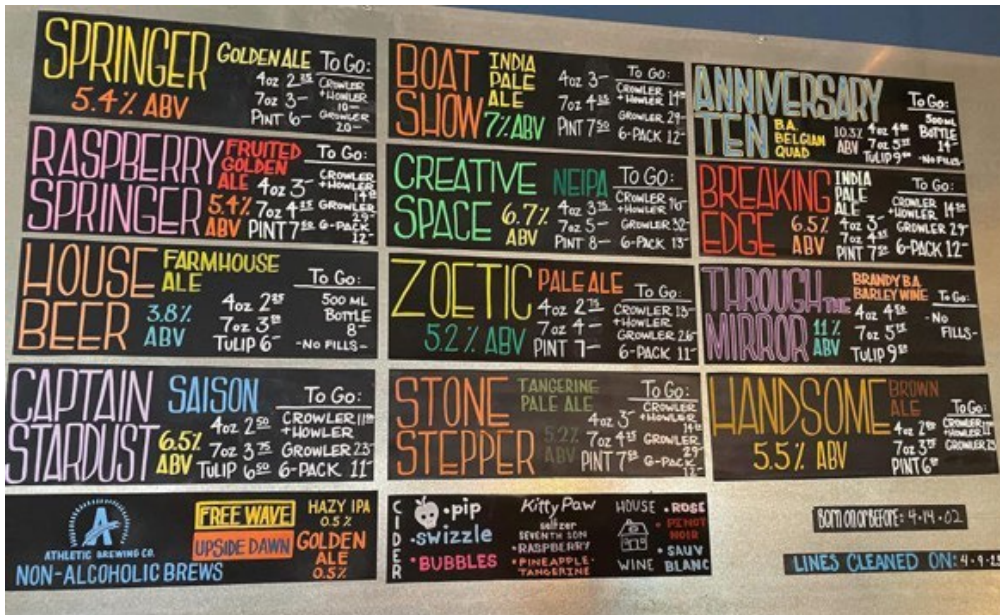 SPRINGER
GOLDEN ALE
5.4% ABV
4oz 2 25
7oz 3-
PINT 6-
To Go:
CROWLER
+HOWLER
10-
GROWLER
20-
RASPBERRY
SPRINGER
FRUITED
GOLDEN
ALE
5.4%
ABV
4oz 3-
7oz 4 25
PINT 7 50
To Go:
CROWLER
+HOWLER
14 50
GROWLER
29-
6-PACK
12-
HOUSE
BEER
FARMHOUSE
ALE
3.8%
ABV
4oz 2 25
7oz 3 50
TULIP 6-
To Go:
500 ML
BOTTLE
8-
-NO FILLS-
CAPTAIN
STARDUST
SAISON
6.5%
ABV
4oz 2 50
7oz 3 75
TULIP 6 50
To Go:
CROWLER 11 50
+HOWLER
GROWLER 23-
6-PACK 11-
A
ATHLETIC BREWING CO.
NON-ALCOHOLIC BREWS
FREE WAVE
HAZY IPA
0.5%
UPSIDE DAWN
GOLDEN
ALE
0.5%
BOAT
SHOW
INDIA
PALE
ALE
7% ABV
4oz 3-
7oz 4 25
PINT 7 50
To Go:
CROWLER 14 50
+HOWLER
GROWLER 29-
6-PACK 12-
CREATIVE
SPACE
NEIPA
6.7%
ABV
4oz 3 25
7oz 5-
PINT 8-
To Go:
CROWLER 16-
+HOWLER
GROWLER 32-
6-PACK 13-
ZOETIC
PALE ALE
5.2% ABV
4oz 2 75
7oz 4-
PINT 7-
To Go:
CROWLER 13-
+HOWLER
GROWLER 26-
6-PACK 11-
STONE
STEPPER
TANGERINE
PALE ALE
5.2%
ABV
4oz 3-
7oz 4 25
PINT 7 50
To Go:
CROWLER
+HOWLER
14 50
GROWLER
29-
6-PACK
12-
CIDER
•pip
•swizzle
•BUBBLES
Kitty Paw
seltzer
SEVENTH SON
•RASPBERRY
•PINEAPPLE-
TANGERINE
HOUSE
WINE
•ROSE
•PINOT
NOIR
•SAUV
BLANC
ANNIVERSARY
TEN
B.A.
BELGIAN
QUAD
10.3%
ABV
4oz 4 50
7oz 5 50
TULIP 9 00
To Go:
500 ML
BOTTLE
14-
-NO FILLS-
BREAKING
EDGE
INDIA
PALE
ALE
6.5%
ABV
4oz 3-
7oz 4 25
PINT 7 50
To Go:
CROWLER 14 50
+HOWLER
GROWLER 29-
6-PACK 12-
THROUGH THE
MIRROR
BRANDY B.A.
BARLEY WINE
11%
ABV
4oz 4 50
7oz 5 50
TULIP 9 00
To Go:
-NO
FILLS-
HANDSOME
BROWN
ALE
5.5% ABV
4oz 2 50
7oz 3 75
PINT 6 50
To Go:
CROWLER
+HOWLER
GROWLER
BORN ON OR BEFORE: 4·14·02
LINES CLEANED ON: 4·9·